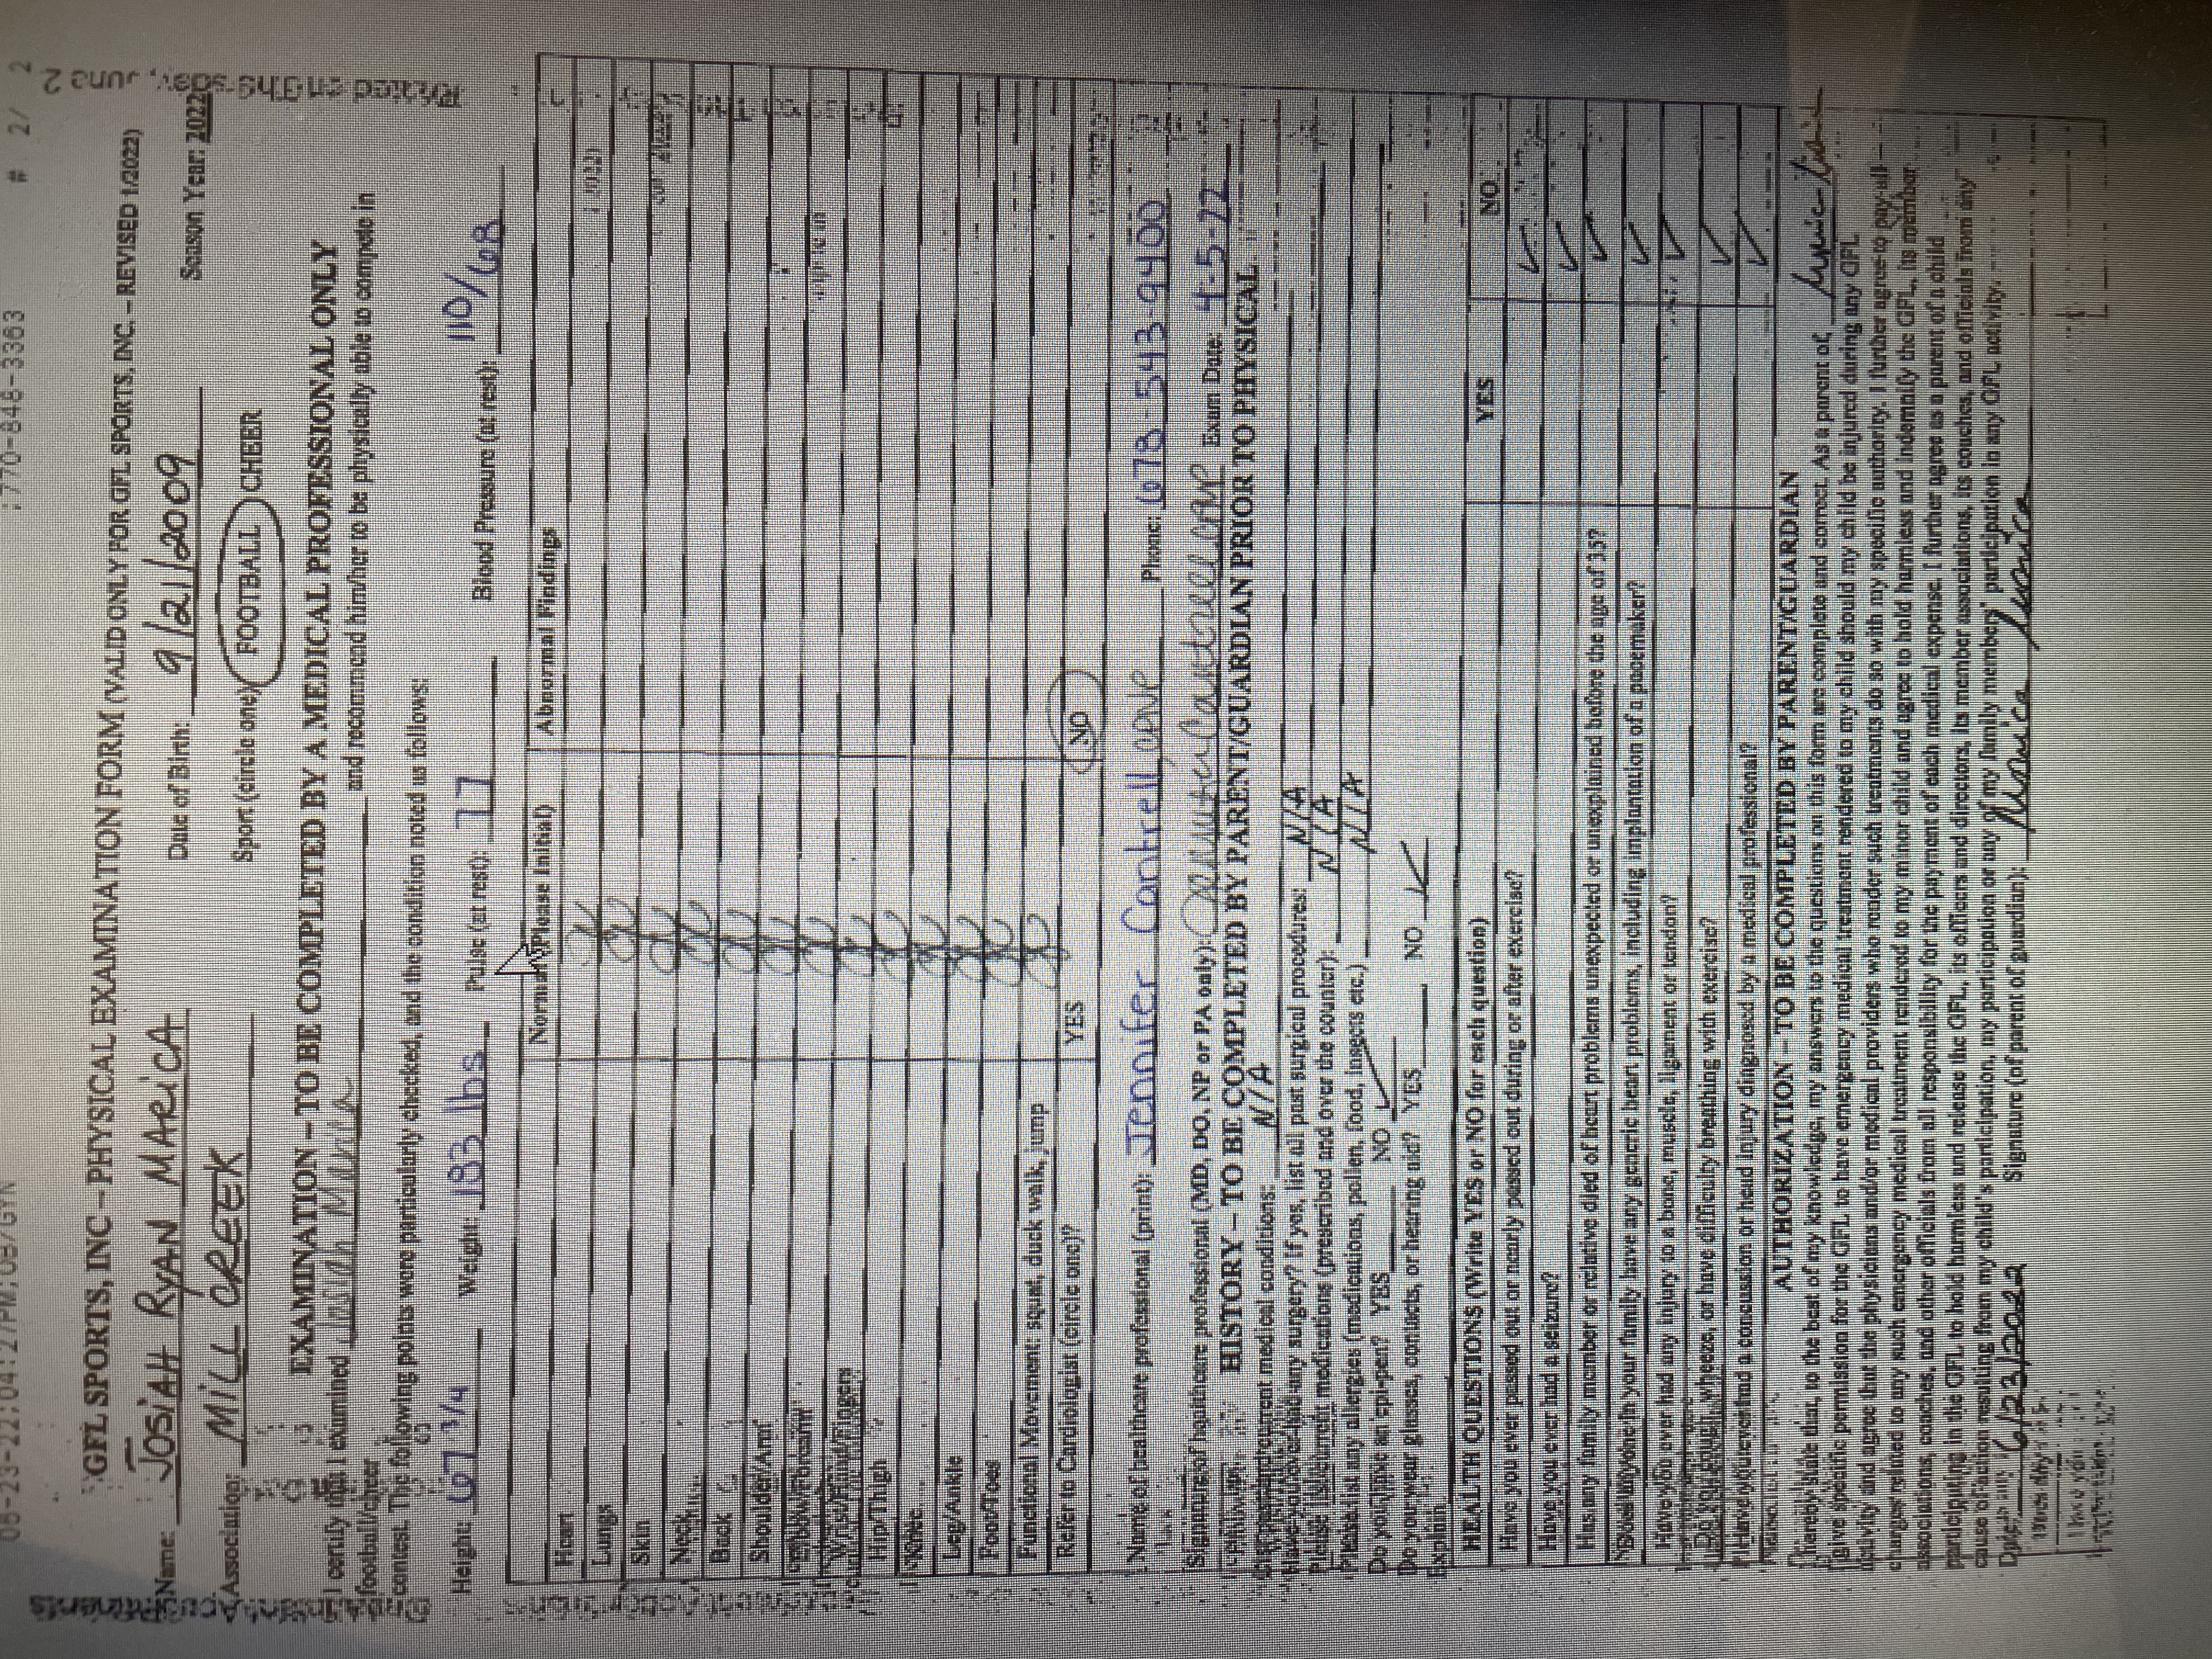 :770-848-3363 # 2/ 2
GFL SPORTS, INC – PHYSICAL EXAMINATION FORM (VALID ONLY FOR GFL SPORTS, INC. – REVISED 1/2022)
Name: JOSIAH RYAN MARICA Date of Birth: 9/21/2009 Season Year: 2022
Association: MILL CREEK Sport (circle one) FOOTBALL CHEER
EXAMINATION – TO BE COMPLETED BY A MEDICAL PROFESSIONAL ONLY
I certify that I examined Josiah Marica and recommend him/her to be physically able to compete in
football/cheer
contest. The following points were particularly checked, and the condition noted as follows:
Height: 67 3/4 Weight: 183 lbs Pulse (at rest): 77 Blood Pressure (at rest): 110/68
Normal (Please Initial) Abnormal Findings
Heart
Lungs
Skin
Neck
Back
Shoulder/Arm
Elbow/Forearm
Wrist/Hand/Fingers
Hip/Thigh
Knee
Leg/Ankle
Foot/Toes
Functional Movement: squat, duck walk, jump
Refer to Cardiologist (circle one)? YES NO
Name of healthcare professional (print): Jennifer Cantrell, CPNP Phone: 678-543-9400
Signature of healthcare professional (MD, DO, NP or PA only): Jennifer Cantrell CPNP Exam Date: 4-5-22
HISTORY – TO BE COMPLETED BY PARENT/GUARDIAN PRIOR TO PHYSICAL
current medical conditions: N/A
Have you ever had any surgery? If yes, list all past surgical procedures: N/A
Please list current medications (prescribed and over the counter): N/A
Please list any allergies (medications, pollen, food, insects etc.) N/A
Do you have an epi-pen? YES NO ✓
Do you wear glasses, contacts, or hearing aid? YES NO ✓
Explain
HEALTH QUESTIONS (Write YES or NO for each question) YES NO
Have you ever passed out or nearly passed out during or after exercise? ✓
Have you ever had a seizure? ✓
Has any family member or relative died of heart problems unexpected or unexplained before the age of 35? ✓
Does anyone in your family have any generic heart problems, including implantation of a pacemaker? ✓
Have you ever had any injury to a bone, muscle, ligament or tendon? ✓
Do you cough, wheeze, or have difficulty breathing with exercise? ✓
Have you ever had a concussion or head injury diagnosed by a medical professional? ✓
AUTHORIZATION – TO BE COMPLETED BY PARENT/GUARDIAN
I hereby state that, to the best of my knowledge, my answers to the questions on this form are complete and correct. As a parent of,
I give specific permission for the GFL to have emergency medical treatment rendered to my child should my child be injured during any GFL
activity and agree that the physicians and/or medical providers who render such treatments do so with my specific authority. I further agree to pay all
charges related to any such emergency medical treatment rendered to my minor child and agree to hold harmless and indemnify the GFL, its member
associations, coaches, and other officials from all responsibility for the payment of such medical expense. I further agree as a parent of a child
participating in the GFL to hold harmless and release the GFL, its officers and directors, its member associations, its coaches, and officials from any
cause of action resulting from my child's participation, my participation or any of my family members' participation in any GFL activity.
Date: 6/23/2022 Signature (of parent of guardian):